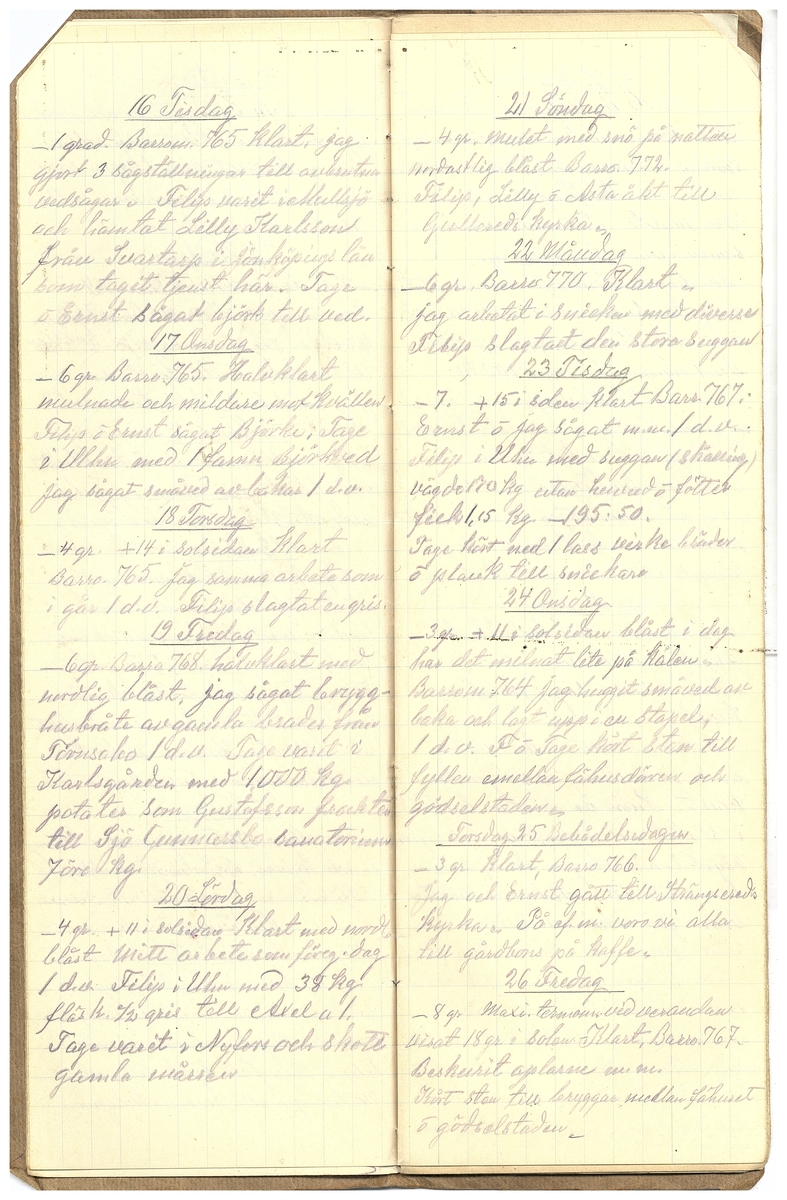 16 Tisdag
—1 grad. Barrom. 765 klart, jag
gjort 3 sågställningar till
vedsågar. Filip varit i Mullsjö
och hämtat Lilly Karlsson
från Svartarp i Jönköpings län
som tagit tjenst här. Tage
o Ernst sågat björk till ved.
17 Onsdag
—6 gr. Barro. 765. Halvklart
mulnade och mildare mot kvällen
Filip o Ernst sågat Björke; Tage
i Uhn med 1 famn Björkved
jag sågat småved av bakar 1 d.v.
18 Torsdag
—4 gr. +14 i solsidan klart
Barro. 765. Jag samma arbete som
i går 1 d.v. Filip slagtat en gris.
19 Fredag
—6 gr. Barro 768. halvklart med
nordlig blåst, jag sågat brygg-
husbråte av gamla bräder från
1 d.v. Tage varit i
Karlsgården med 1,000 kg.
potater som Gustafsson frakter
till Sjö Gunnarsbo sanatorium
7 öre kg.
20 Lördag
—4 gr. +11 i solsidan Klart med nordl.
blåst Mitt arbete som föreg. dag
1 d.v. Filip i Uhn med 38 kg.
fläsk. 1/2 gris till Axel a 1.
Tage varit i Nyfors och skott
gamla märren
21 Söndag
—4 gr. Mulet med snö på natten
nordostlig blåst Barro. 772.
Filip, Lilly o Asta åkt till
Gullereds kyrka.
22 Måndag
—6 gr. Barro 770. Klart
jag arbetat i snickeri med diverse
Filip slagtat den stora suggan
23 Tisdag
—7. +15 i solen klart Barr. 767.
Ernst o jag sågat m.m. 1 d.v.
Filip i Uhn med suggan
vägde 170 kg utan huvud o fötter
fick 1,15 kg —195.50.
Tage kört ned 1 lass virke bräder
o plank till snickare
24 Onsdag
—3 gr. +11 i solsidan blåst i dag
har det milnat lite på kälen.
Barrom 764 jag huggit småved av
baka och lagt upp i en stapel;
1 d.v. F o Tage kört sten till
fyllen emellan fähusdörren och
gödselstaden.
Torsdag 25 Bebådelsedagen
—3 gr. klart, Barro 766.
Jag och Ernst gått till Strängsereds
Kyrka. På ef.m. voro vi alla
till gårdbons på kaffe.
26 Fredag
—8 gr. Maxi. termom. vid verandan
visat 18 gr. i solen. Klart, Barro. 767.
Beskurit aplarne m.m.
Kört sten till bryggan mellan fähuset
o gödselstaden.